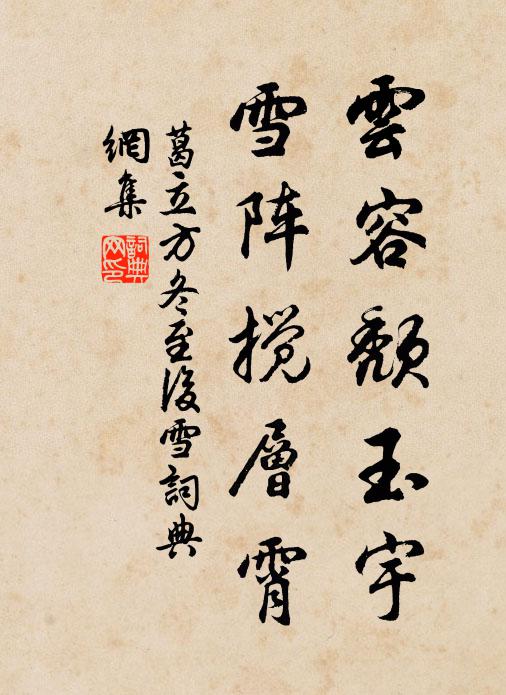 雲容頹玉宇
雪阵搅層霄
葛立方冬至後雪詞典
網集
詞典
网印